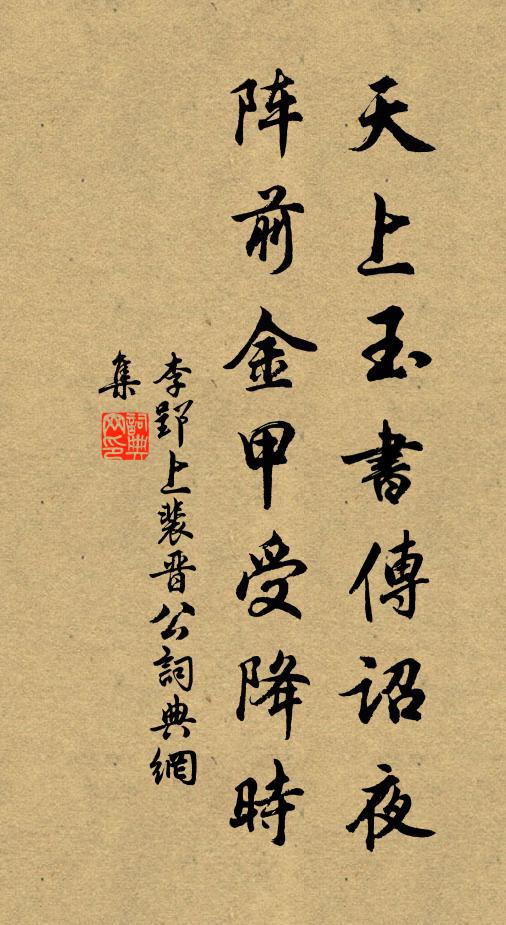 天上玉書傳诏夜
阵前金甲受降時
李郢上裴晋公詞典網
集
詞典
网印